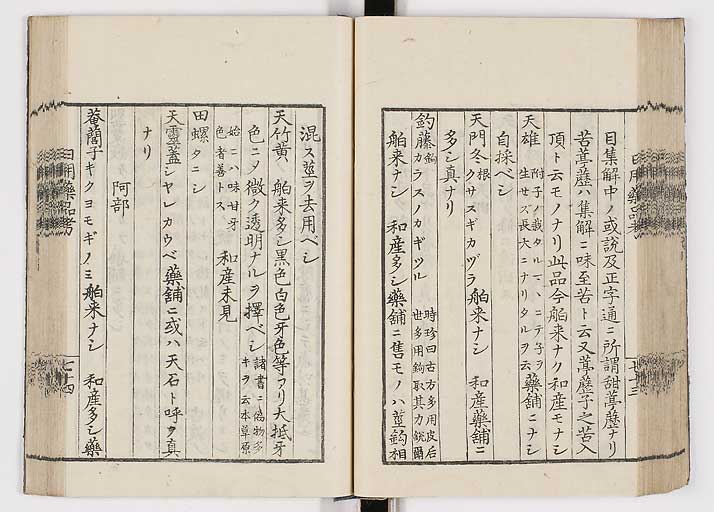 目集解中ノ或説及正字通ニ所謂甜葶藶ナリ
苦葶藶ハ集解ニ味至苦ト云又葶藶子之苦入
頂ト云モノナリ此品今舶来ナク和産モナシ
天雄 附子ノ栽タルマヽニテ子ヲ
生セズ長大ニナリタルヲ云 藥舗ニナシ
自採ベシ
天門冬根 クサスギカヅラ 舶来ナシ 和産藥舗ニ
多シ真ナリ
釣藤鈎 カラスノカギツル 時珍曰古方多用皮后
世多用鈎取其力鋭爾
舶来ナシ 和産多シ藥舗ニ售モノハ莖鈎相
日用藥品考
七十三
混ス莖ヲ去用ベシ
天竹黄 舶来多シ黒色白色牙色等アリ大抵牙
色ニノ微ク透明ナルヲ擇ベシ 諸書ニ偽物多
キヲ云本草原
始ニハ味甘牙
色者善トス 和産未見
田螺 タニシ
天靈蓋 シヤレカウベ 藥舗ニ或ハ天石ト呼ヲ真
ナリ
阿部
菴䕡子 キクヨモギノミ 舶来ナシ 和産多シ藥
日用藥品考
七十四